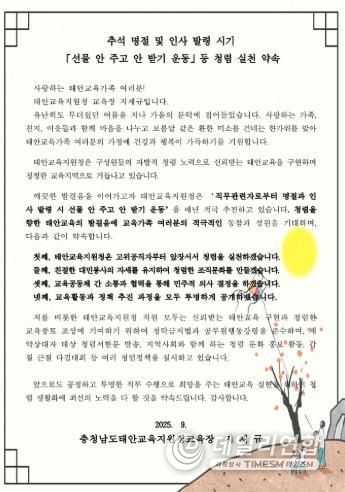 추석 명절 및 인사 발령 시기
「선물 안 주고 안 받기 운동」 등 청렴 실천 약속
사랑하는 태안교육가족 여러분!
태안교육지원청 교육장 지재규입니다.
유난히도 무더웠던 여름을 지나 가을의 문턱에 접어들었습니다. 사랑하는 가족,
친지, 이웃들과 함께 마음을 나누고 보름달 같은 환한 미소를 건네는 한가위를 맞아
태안교육가족 여러분의 가정에 건강과 행복이 가득하기를 기원합니다.
태안교육지원청은 구성원들의 자발적 청렴 노력으로 신뢰받는 태안교육을 구현하며
청정한 교육지역으로 거듭나고 있습니다.
깨끗한 발걸음을 이어가고자 태안교육지원청은 '직무관련자로부터 명절과 인
사 발령 시 선물 안 주고 안 받기 운동'을 매년 적극 추진하고 있습니다. 청렴을
향한 태안교육의 발걸음에 교육가족 여러분의 적극적인 동참과 성원을 기대하며,
다음과 같이 약속합니다.
첫째, 태안교육지원청은 고위공직자부터 앞장서서 청렴을 실천하겠습니다.
둘째, 친절한 대민봉사의 자세를 유지하여 청렴한 조직문화를 만들겠습니다.
셋째, 교육공동체 간 소통과 협력을 통해 민주적 의사 결정을 하겠습니다.
넷째, 교육활동과 정책 추진 과정을 모두 투명하게 공개하겠습니다.
저를 비롯한 태안교육지원청 직원 모두는 신뢰받는 태안교육 구현과 청렴한
교육풍토 조성에 기여하기 위하여 청탁금지법과 공무원행동강령을 준수하며, 계
약상대자 대상 청렴서한문 발송, 지역사회와 함께 하는 청렴 문화 홍보 활동, 갑
질 근절 다짐대회 등 여러 청렴정책을 실시하고 있습니다.
앞으로도 공정하고 투명한 직무 수행으로 희망을 주는 태안교육 실현을 위하여 청
렴 생활화에 최선의 노력을 다 할 것을 약속드립니다. 감사합니다.
2025. 9.
충청남도태안교육지원청교육장 지 재 규
데일리연합
TIMESM